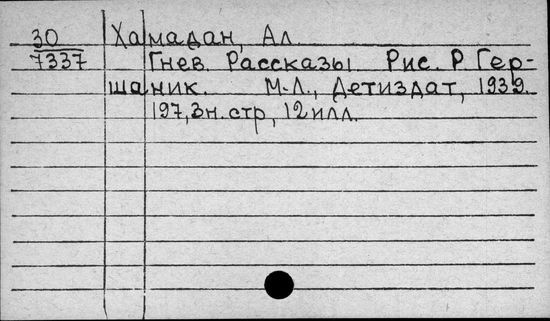 30 Хамадан, Ал
7337 Гнев. Рассказы Рис. Р. Гер-
шаник. М-Л., Детиздат, 1939.
197, 3н. стр, 12 илл.